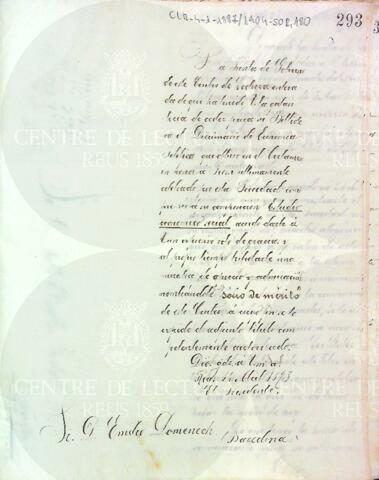 CLR-4-1-1987/1904-SOR,180
293
La Junta de Gobierno
de este Centro de Lectura entera
da de que ha tenido V. la
de ceder para su Biblioteca
el Diccionario de Economía
Política que obtuvo en el Certamen
últimamente
celebrado por esta Sociedad como
premio a su composición Estudio
económico social acordó darle á
V. un voto de gracias y
al propio tiempo tributarle una
muestra de aprecio y
nombrándole socio de mérito
de este Centro, á cuyo
el adjunto título com
petentemente autorizado.
Dios gde a V. m. a.
Reus Abril 1893.
El Presidente,
Sr. D. Emilio Domenech
Barcelona
CENTRE DE LECTURA
REUS 1859
CENTRE DE LECTURA
REUS 1859